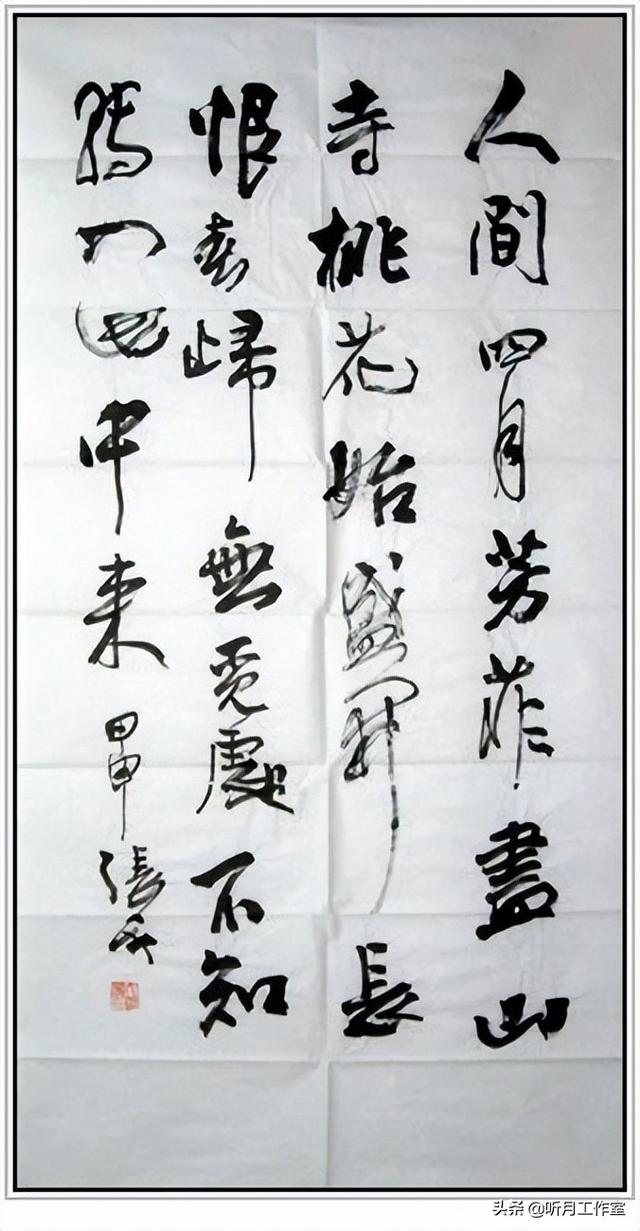 人間四月芳菲盡山
寺桃花始盛開長
恨春歸無覓處不知
轉入此中来
甲申 張
头条 @听月工作室